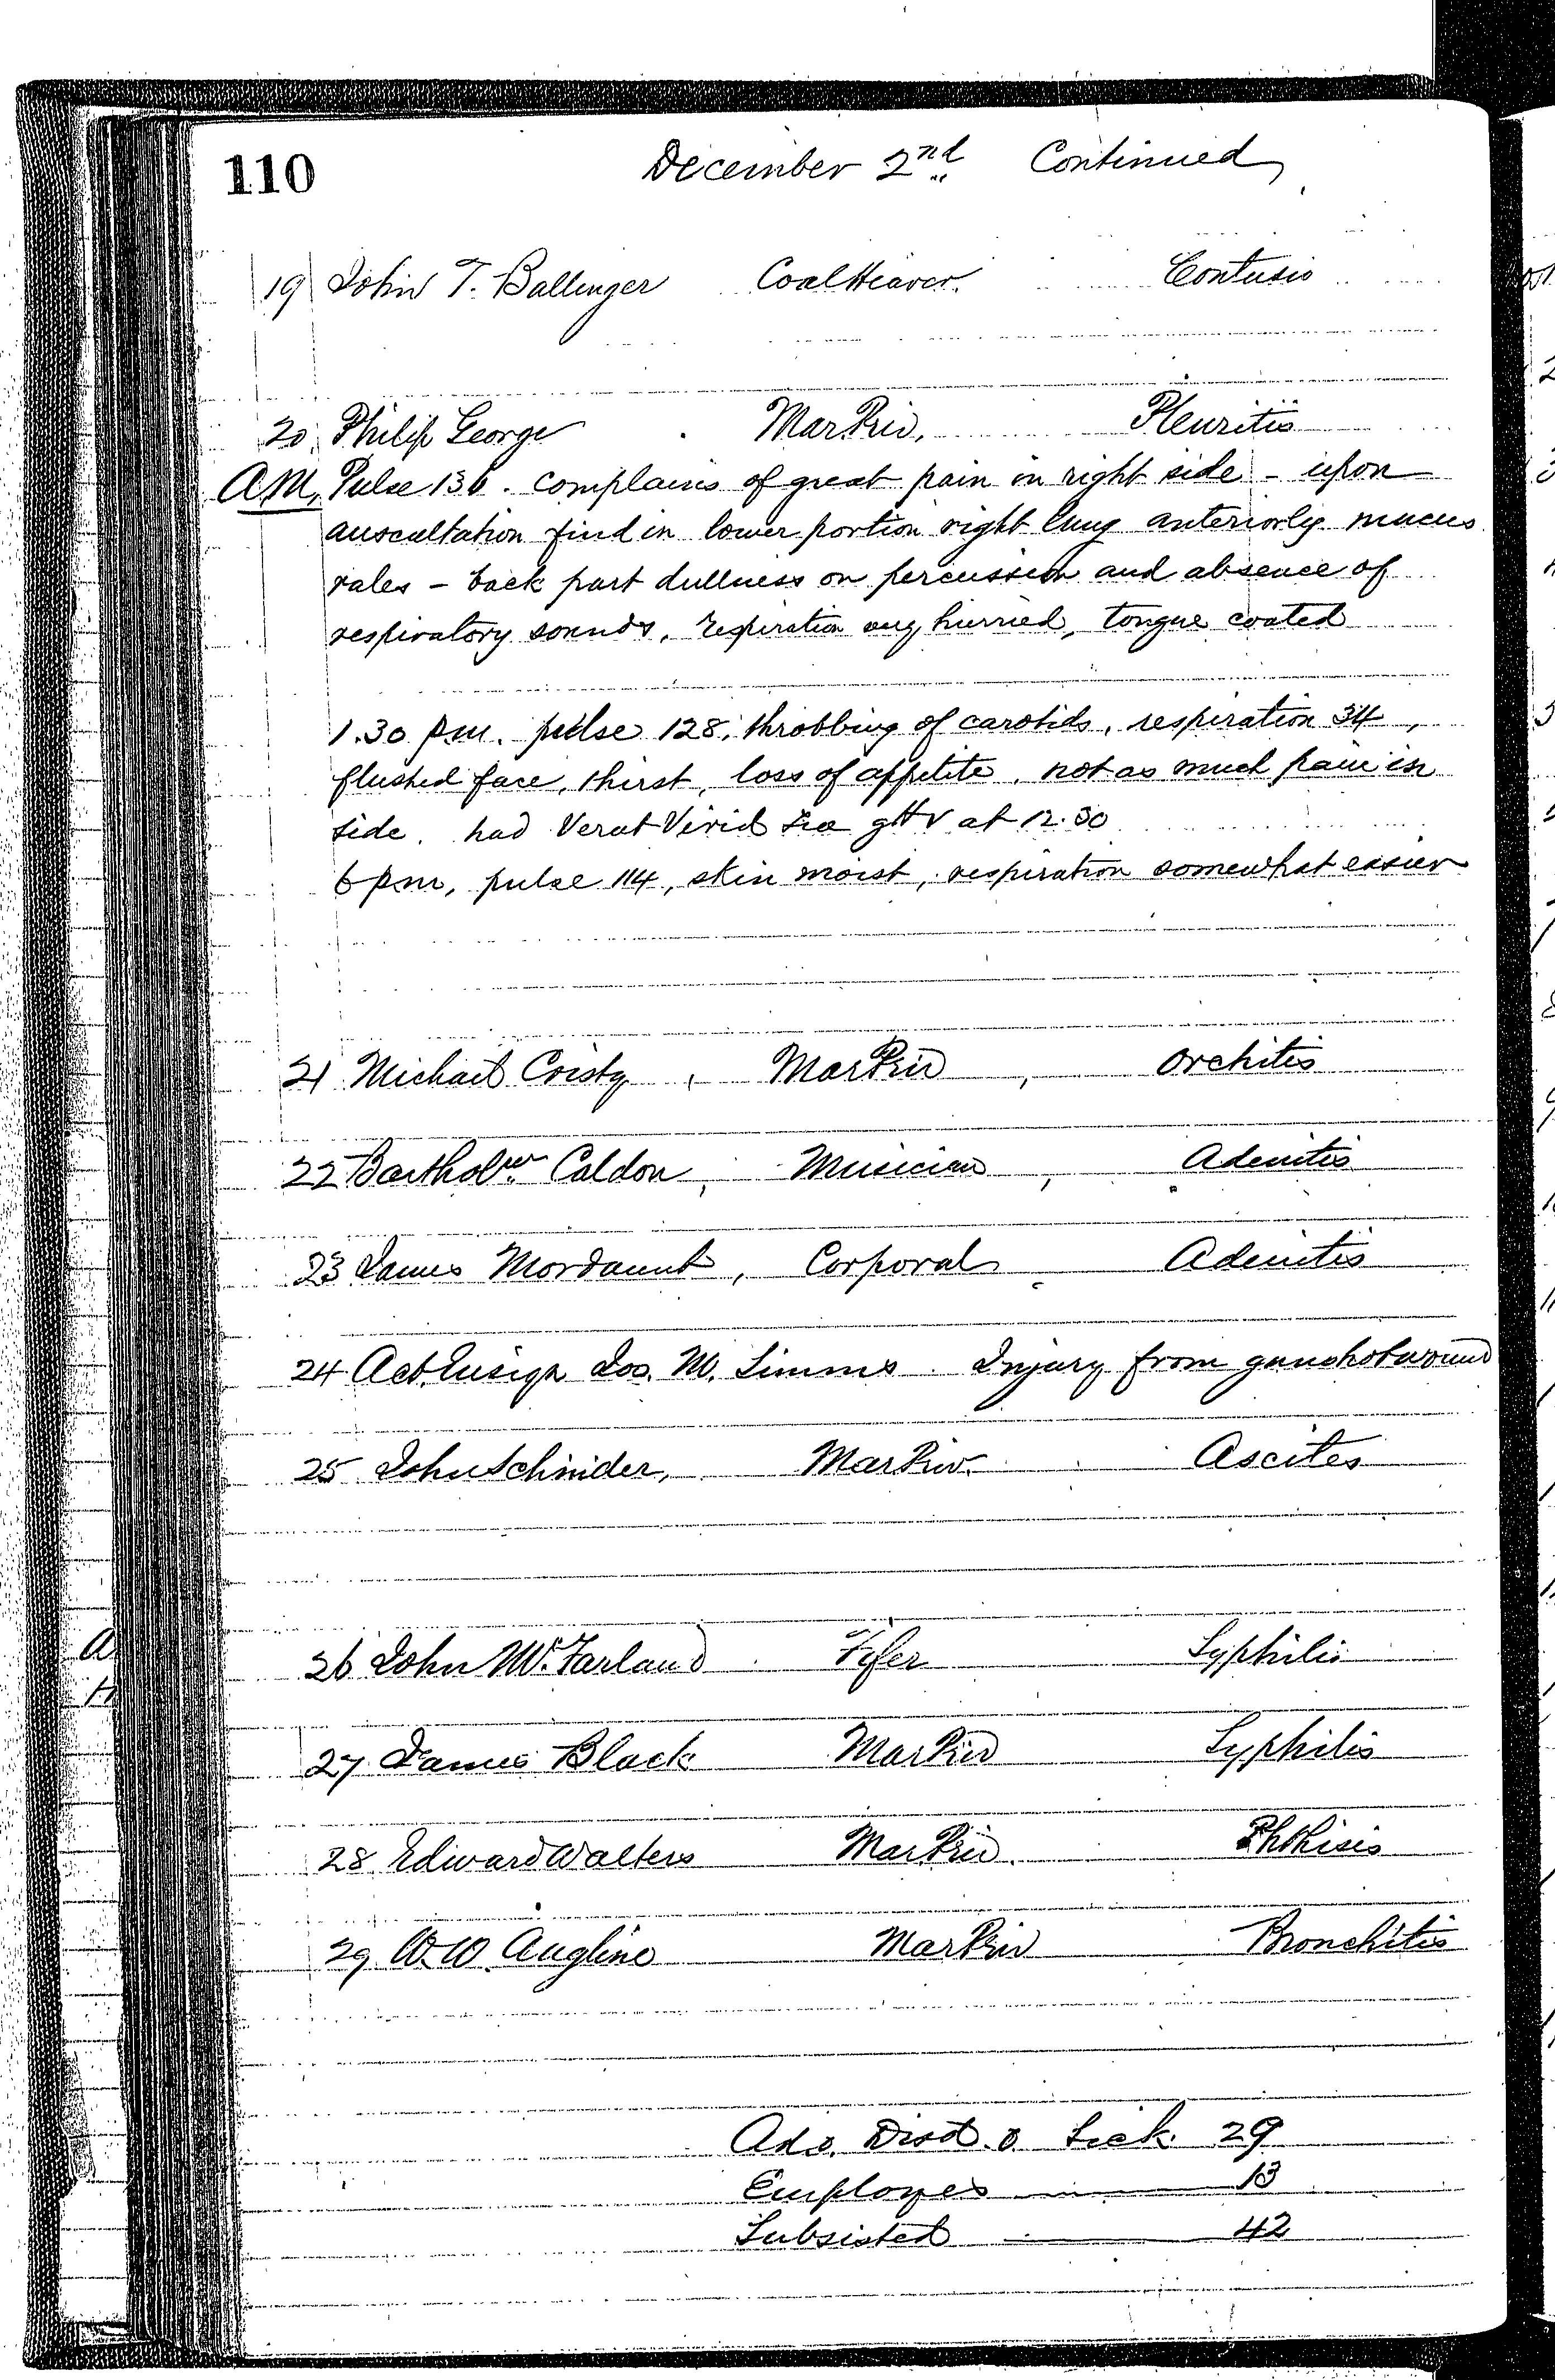 110 December 2nd Continued
19 John T. Ballenger Coal Heaver. Contusio
20 Philip George Mar Priv. Pleuritis
A.M. Pulse 136. complains of great pain in right side - upon
auscultation find in lower portion right lung anteriorly mucus
rales - back part dullness on percussion and absence of
respiratory sounds, respiration very hurried, tongue coated
1.30 p.m. pulse 128, throbbing of carotids, respiration 34,
flushed face, thirst, loss of appetite, not as much pain in
side. had Verat Virid gtt V at 12.30
6 p.m, pulse 114, skin moist, respiration somewhat easier
21 Michael Mar Priv Orchitis
22 Barthol'w Caldon, Musician, Adenitis
23 James Mordaunt, Corporal Adenitis
24 Act. Ensign Jos. M. Simms. Injury from gunshot wound
25 John Schnider, Mar Priv. Ascites
26 John McFarland Fifer Syphilis
27 James Black Mar Priv Syphilis
28 Edward Walters Mar Priv. Phthisis
29 W. W. Angline Mar Priv Bronchitis
Sick 29
Employes 13
Subsisted 42